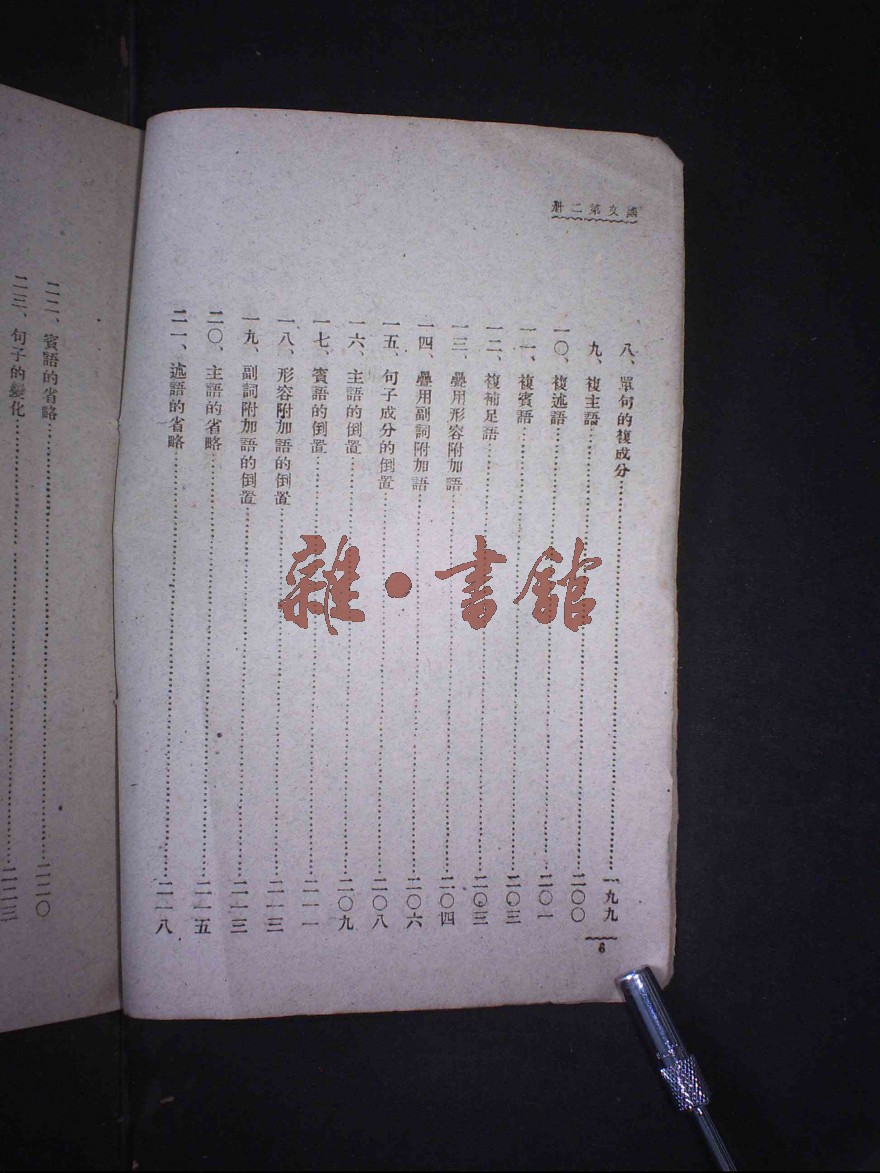 國文第二册
八、單句的複成分……一九九
九、複主語……二〇〇
一〇、複述語……二〇一
一一、複賓語……二〇三
一二、複補足語……二〇三
一三、疊用形容附加語……二〇四
一四、疊用副詞附加語……二〇六
一五、句子成分的倒置……二〇八
一六、主語的倒置……二〇九
一七、賓語的倒置……二一一
一八、形容附加語的倒置……二一三
一九、副詞附加語的倒置……二一三
二〇、主語的省略……二一五
二一、述語的省略……二一八
6
二二、賓語的省略……二二〇
二三、句子的變化……二二三
雜·書館